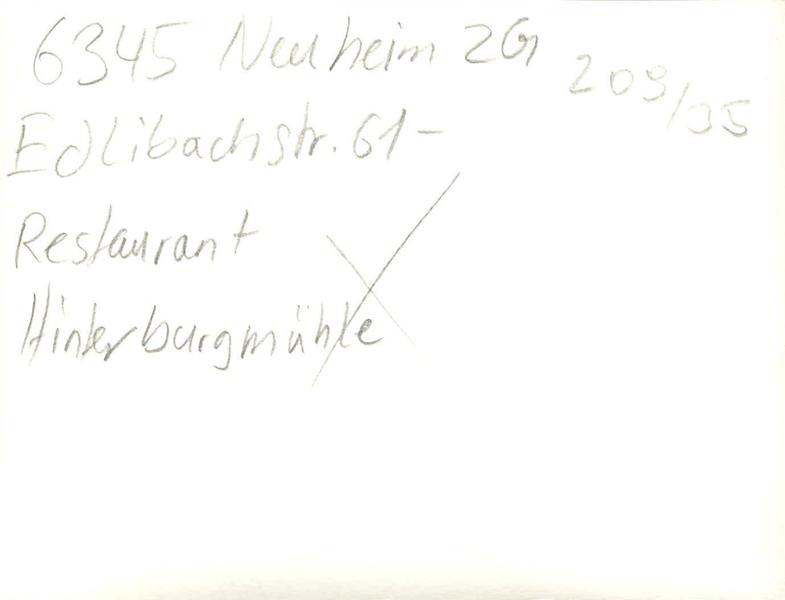 6345 Neuheim ZG 209/35
Edlibachstr. 61-
Restaurant
Hinterburgmühle